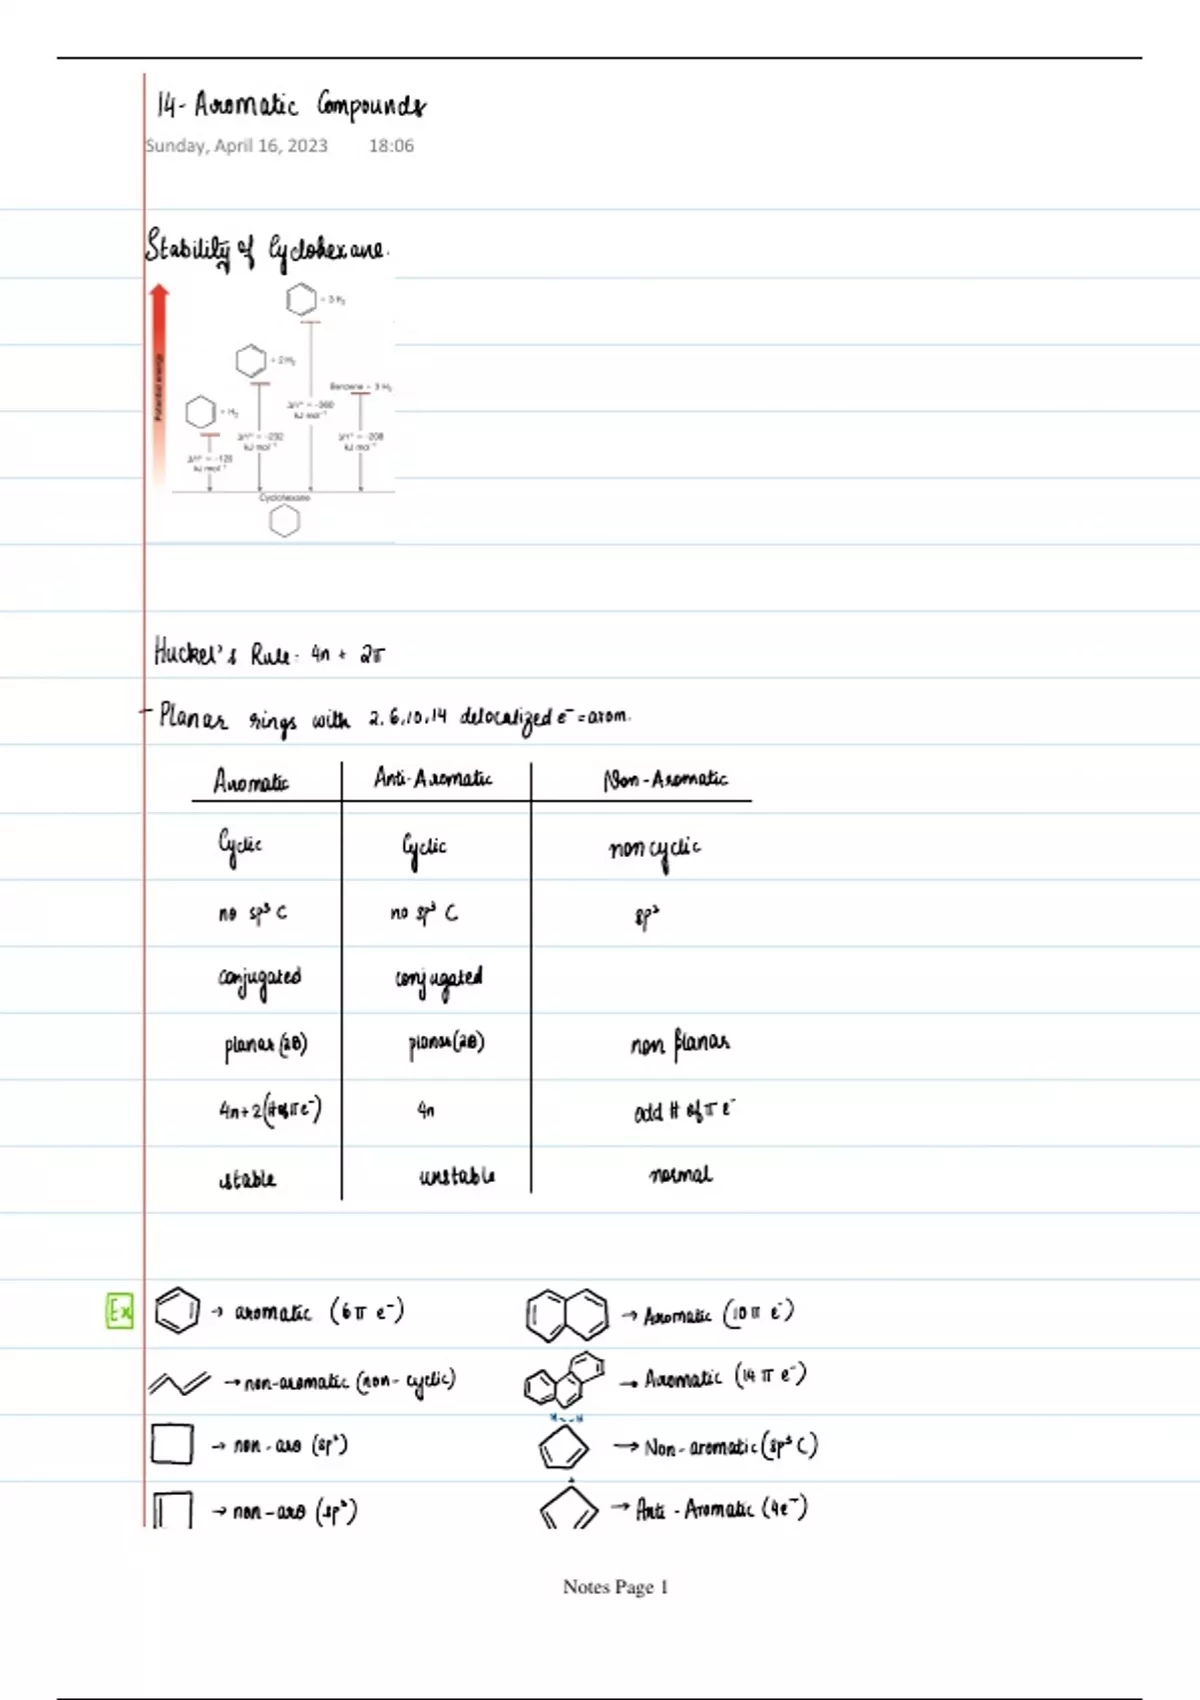 14- Aromatic Compounds
Sunday, April 16, 2023 18:06
Stability of Cyclohexane.
+ 3 H₂
+ 2 H₂
Benzene + 3 H₂
+ H₂
Potential energy
ΔH° = -360 kJ mol⁻¹
ΔH° = -232 kJ mol⁻¹
ΔH° = -208 kJ mol⁻¹
ΔH° = -120 kJ mol⁻¹
Cyclohexane
Huckel's Rule: 4n + 2π
- Planar rings with 2,6,10,14 delocalized e⁻ = arom.
Aromatic Anti-Aromatic Non-Aromatic
Cyclic Cyclic non cyclic
no sp³ C no sp³ C sp³
conjugated conjugated
planar (2θ) planar (2θ) non planar
4n+2 (# of π e⁻) 4n odd # of π e⁻
stable unstable normal
Ex → aromatic (6π e⁻) → Aromatic (10 π e⁻)
→ non-aromatic (non-cyclic) → Aromatic (14 π e⁻)
H H
→ non-aro (sp³) → Non-aromatic (sp³ C)
+
→ non-aro (sp³) → Anti-Aromatic (4e⁻)
Notes Page 1